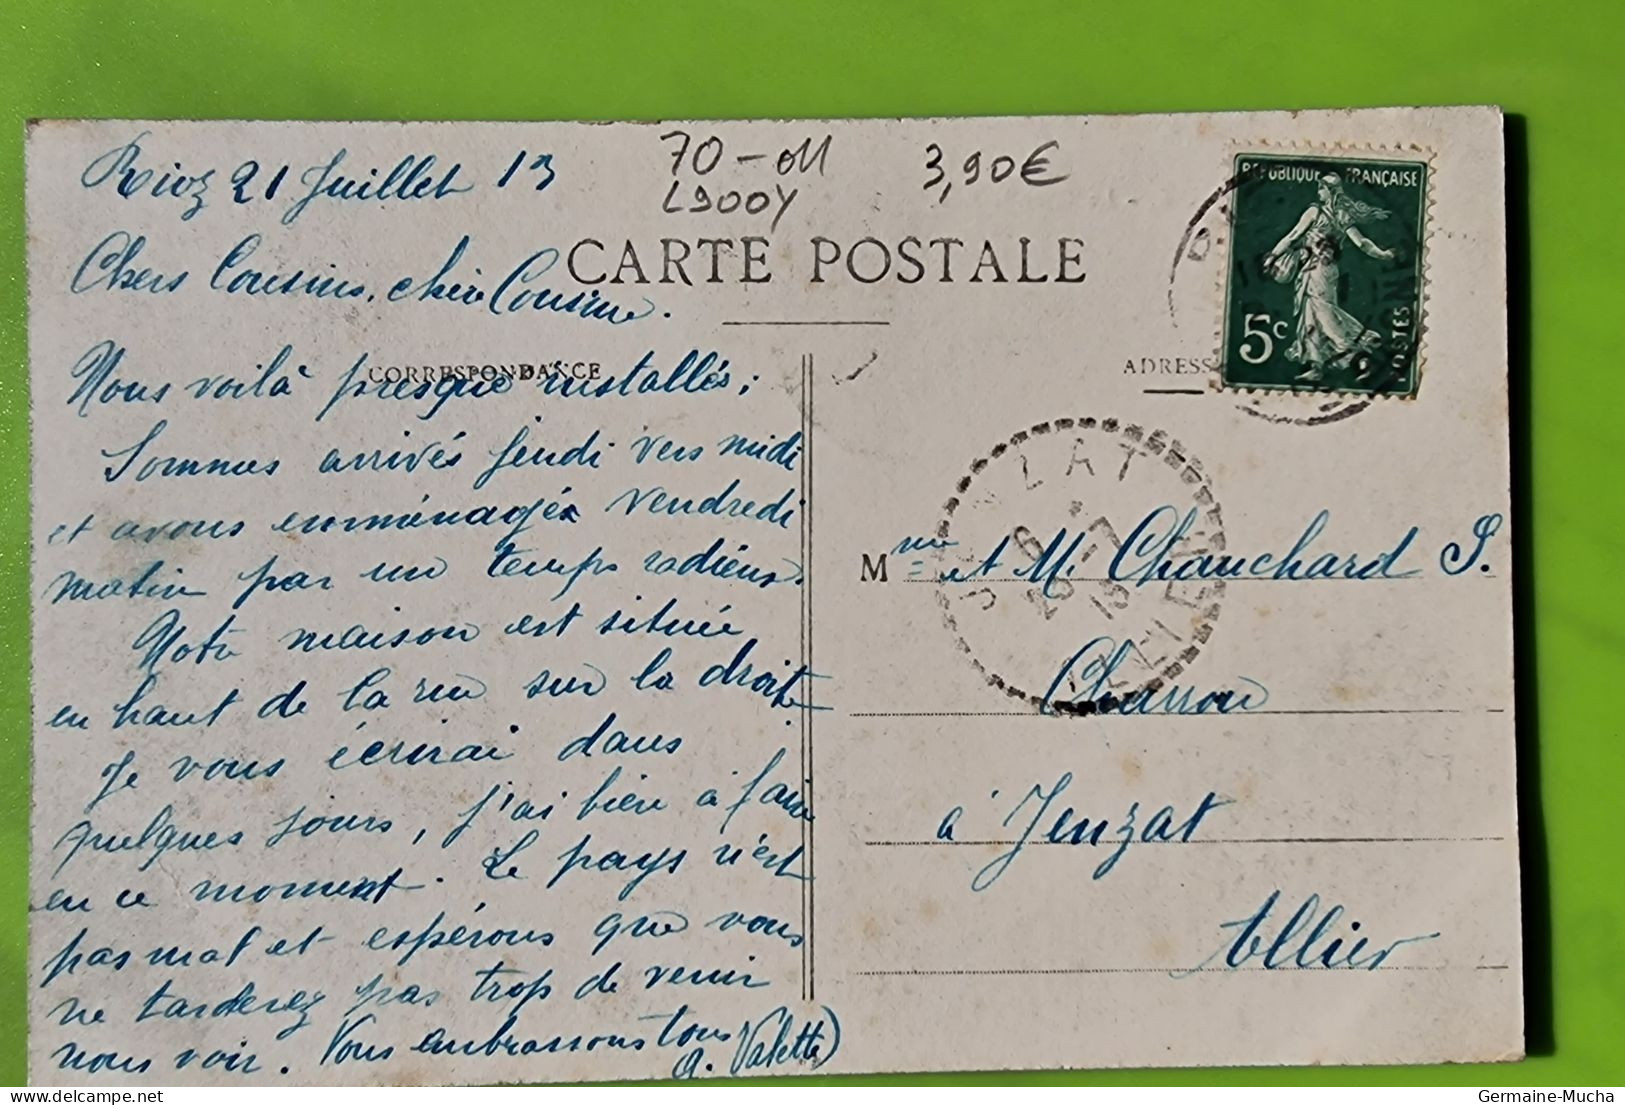 Rioz 21 Juillet 13
70 - 011
L900Y
3,90€
CARTE POSTALE
Chers Cousins, chère Cousine.
CORRESPONDANCE
Nous voilà presque installés;
Sommes arrivés jeudi vers midi
et avons emménagés vendredi
matin par un temps radieux.
Notre maison est située
en haut de la rue sur la droite
Je vous écrirai dans
quelques jours, j'ai bien à faire
en ce moment. Le pays n'est
pas mal et espérons que vous
ne tarderez pas trop de venir
nous voir. Vous embrassons tous
a. Valette)
REPUBLIQUE FRANÇAISE
5c
POSTES
ADRESSE
JENZAT
ALLIER
Mme et M. Chauchard S.
Charron
à Jenzat
Allier
Germaine-Mucha